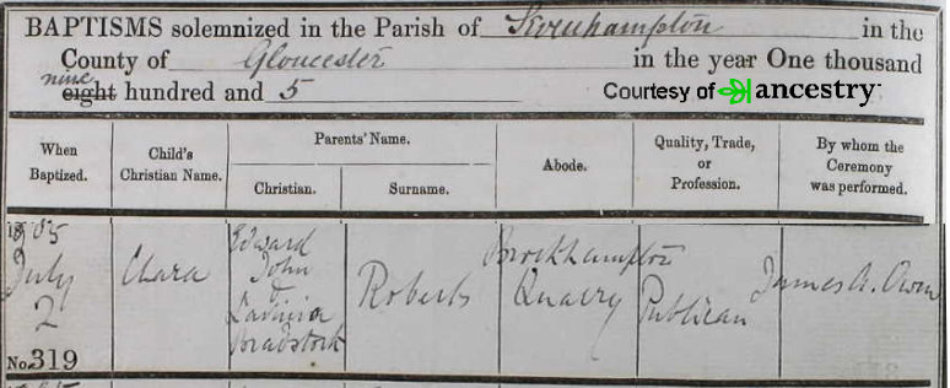 BAPTISMS solemnized in the Parish of Sevenhampton in the
County of Gloucester in the year One thousand
nine
eight hundred and 5
Courtesy of ancestry
When
Baptized.
Child's
Christian Name.
Parents' Name.
Christian.
Surname.
Abode.
Quality, Trade,
or
Profession.
By whom the
Ceremony
was performed.
1905
July
2
No. 319
Clara
Edward
John
&
Lavinia
Bradstock
Roberts
Brockhampton
Quarry
Publican
James A. Owen